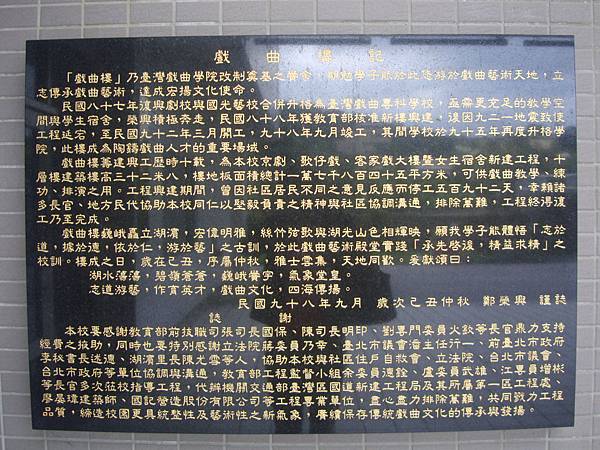 戲曲樓記
「戲曲樓」乃臺灣戲曲學院改制奠基之黌舍,期勉學子能於此悠游於戲曲藝術天地,立
志傳承戲曲藝術,達成宏揚文化使命。
民國八十七年復興劇校與國光藝校合併升格為臺灣戲曲專科學校,亟需更充足的教學空
間與學生宿舍,榮興積極奔走,民國八十八年獲教育部核准新樓興建,復因九二一地震致使
工程延宕,至民國九十二年三月開工,九十八年九月竣工,其間學校於九十五年再度升格學
院,此樓成為陶鑄戲曲人才的重要場域。
戲曲樓籌建興工歷時十載,為本校京劇、歌仔戲、客家戲大樓暨女生宿舍新建工程,十
層樓建築樓高三十二米八,樓地板面積總計一萬七千八百四十五平方米,可供戲曲教學、練
功、排演之用。工程興建期間,曾因社區居民不同之意見反應而停工五百九十二天,幸賴諸
多長官、地方民代協助本校同仁以堅毅負責之精神與社區協調溝通,排除萬難,工程終得復
工乃至完成。
戲曲樓巍峨矗立湖濱,宏偉明雅,絲竹弦歌與湖光山色相輝映,願我學子能體悟「志於
道,據於德,依於仁,游於藝」之古訓,於此戲曲藝術殿堂實踐「承先啓後,精益求精」之
校訓。樓成之日,歲在己丑,序屬仲秋,雅士雲集,天地同歡。爰獻頌曰:
湖水蕩蕩,碧嶺蒼蒼,巍峨黌宇,氣象堂皇。
志道游藝,作育英才,戲曲文化,四海傳揚。
民國九十八年九月 歲次己丑仲秋 鄭榮興 謹誌
誌 謝
本校要感謝教育部前技職司張司長國保、陳司長明印、劉專門委員火欽等長官鼎力支持
經費之挹助,同時也要特別感謝立法院蔣委員乃辛、臺北市議會潘主任 、前臺北市政府
李秘書長述德、湖濱里長陳光雲等人,協助本校與社區住戶自救會、立法院、台北市議會、
台北市政府等單位協調與溝通,教育部工程監督小組余委員德銓、盧委員武雄、江專員增彬
等長官多次蒞校指導工程,代辦機關交通部臺灣區國道新建工程局及其所屬第一區工程處、
廖晏瑋建築師、國記營造股份有限公司等工程專業單位,盡心盡力排除萬難,共同戮力工程
品質,締造校園更具統整性及藝術性之新氣象,賡續保存傳統戲曲文化的傳承與發揚。